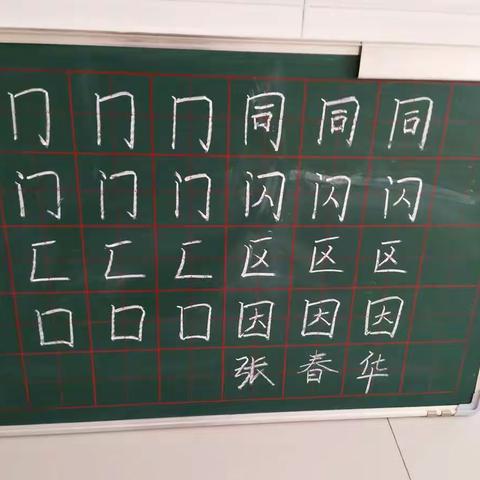 冂冂冂同同同
门门门闪闪闪
匚匚匚区区区
囗囗囗因因因
张春华